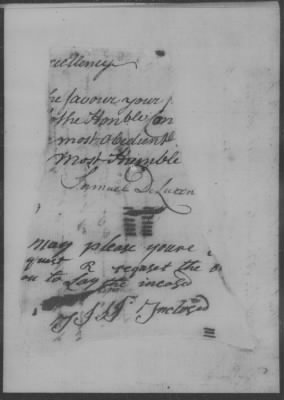 cellency
he favour your
to the Honble
most obedient
most Humble
Samuel
may please youre
quest R request the
ou to Lay the incased
Inclosed